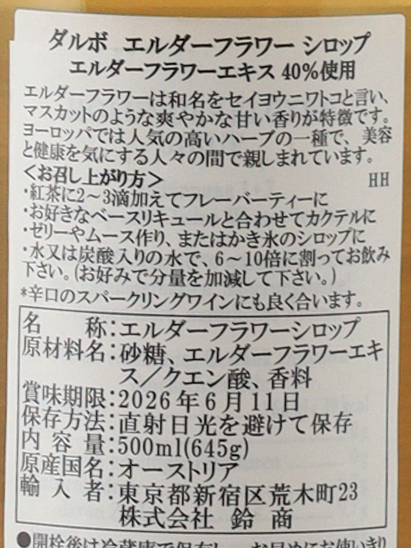 ダルボ エルダーフラワー シロップ
エルダーフラワーエキス 40%使用
エルダーフラワーは和名をセイヨウニワトコと言い、
マスカットのような爽やかな甘い香りが特徴です。
ヨーロッパでは人気の高いハーブの一種で、美容
と健康を気にする人々の間で親しまれています。
<お召し上がり方> HH
・紅茶に2～3滴加えてフレーバーティーに
・お好きなベースリキュールと合わせてカクテルに
・ゼリーやムース作り、またはかき氷のシロップに
・水又は炭酸入りの水で、6～10倍に割ってお飲み
下さい。(お好みで分量を加減して下さい。)
*辛口のスパークリングワインにも良く合います。
名称:エルダーフラワーシロップ
原材料名:砂糖、エルダーフラワーエキ
ス／クエン酸、香料
賞味期限:2026年6月11日
保存方法:直射日光を避けて保存
内容量:500ml(645g)
原産国名:オーストリア
輸入者:東京都新宿区荒木町23
株式会社 鈴商
●開栓後は冷蔵庫で保存し、お早めにお使いきり